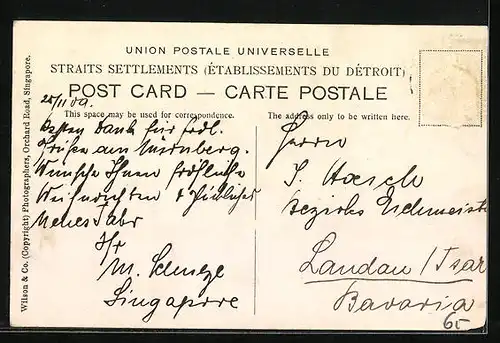 UNION POSTALE UNIVERSELLE
STRAITS SETTLEMENTS (ÉTABLISSEMENTS DU DÉTROIT)
POST CARD — CARTE POSTALE
This space may be used for correspondence.
The address only to be written here.
Wilson & Co. (Copyright) Photographers, Orchard Road, Singapore.
25/11 09.
Besten Dank für frdl.
Grüße aus Nürnberg.
Wünsche Ihnen fröhliche
Weihnachten & glückliches
Neues Jahr
Ihr
M.
Singapore
Herrn
Bezirks
Landau / Isar
Bavaria
65